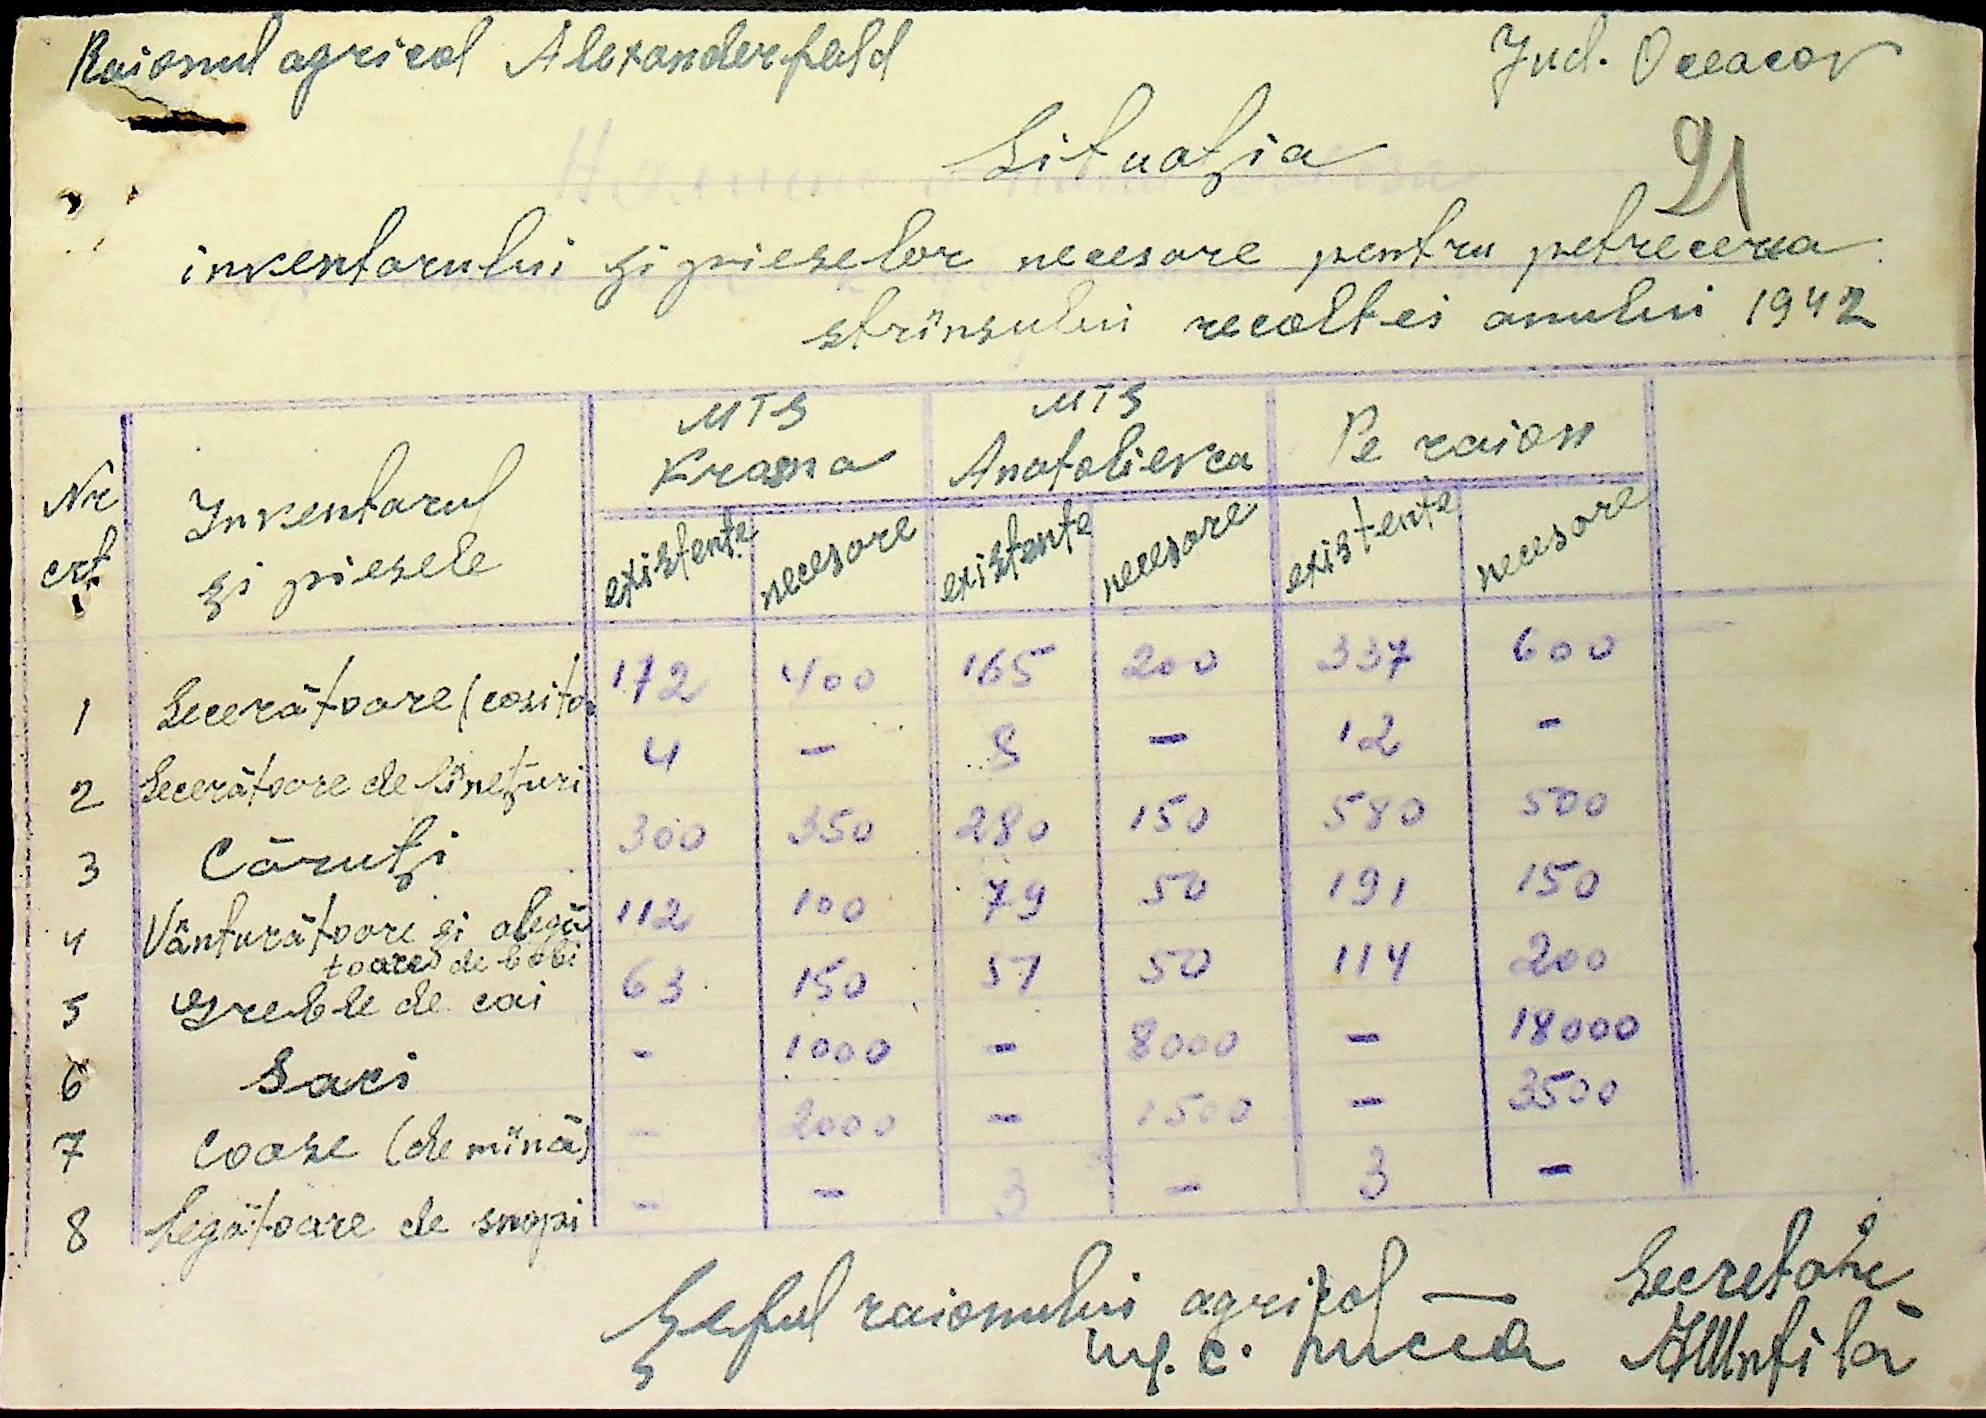 Raionul agricol Alexanderfeld Jud. Oceacov
Situația
21
inventarului și pieselor necesare pentru petrecerea
strînsului recoltei anului 1942
Nr crt Inventarul și piesele MTS Krasna MTS Anatolievca Pe raion
existente necesare existente necesare existente necesare
1 Secerătoare (cosito 172 400 165 200 337 600
2 Secerătoare de fînețuri 4 - 8 - 12 -
3 Căruți 300 350 280 150 580 500
4 Vânturătoare și alegă 112 100 79 50 191 150
toare de bobi
5 Greble de cai 63 150 57 50 114 200
6 Saci - 1000 - 8000 - 18000
7 Coase (de mînă) - 2000 - 1500 - 3500
8 Legătoare de snopi - - 3 - 3 -
Șeful raionului agricol — Secretar
Ing. C.